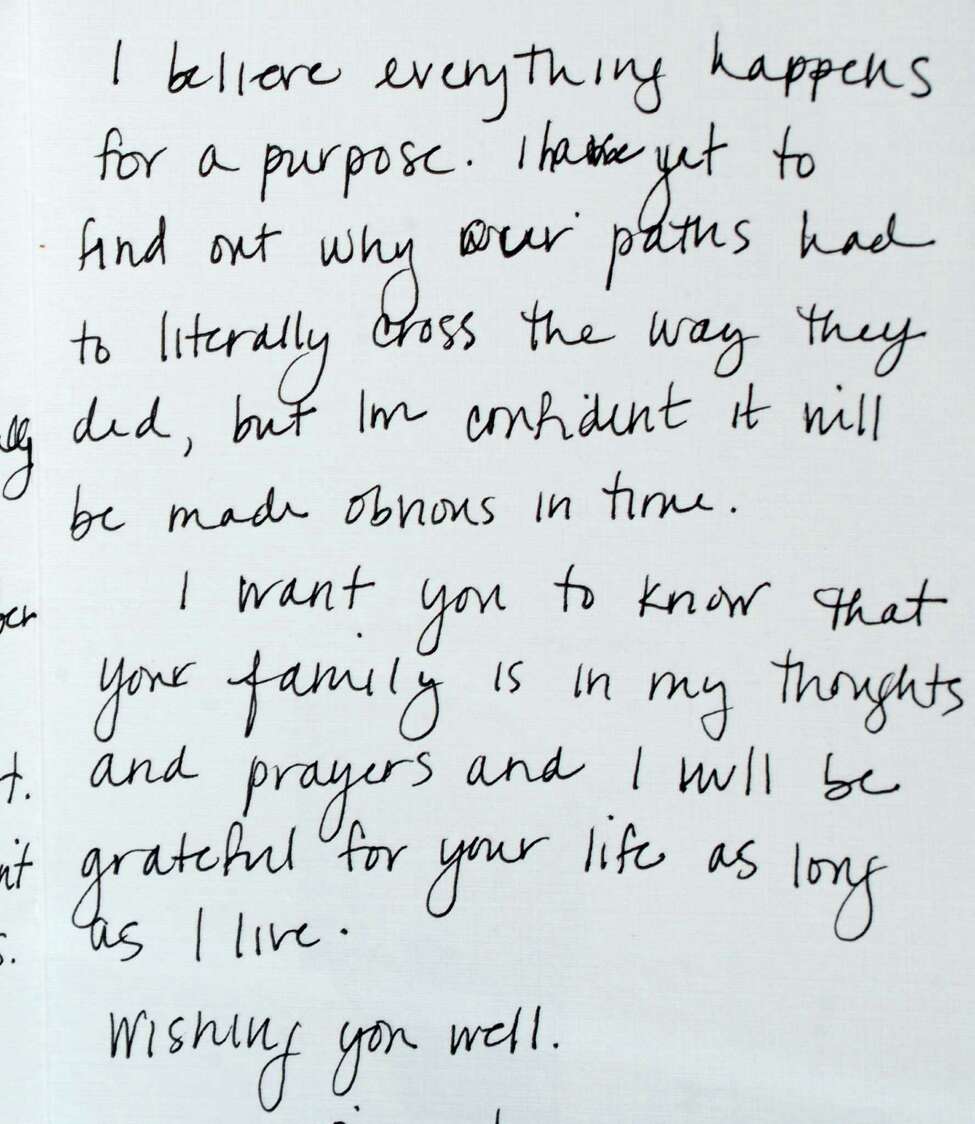 I believe everything happens
for a purpose. I have yet to
find out why our paths had
to literally cross the way they
did, but Im confident it will
be made obvious in time.
I want you to know that
your family is in my thoughts
and prayers and I will be
grateful for your life as long
as I live.
Wishing you well.